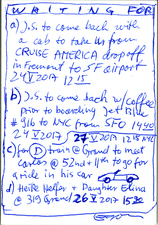 WAITING FOR
a) J.S. to come back with
a cab to take us from
CRUISE AMERICA dropoff
in Fremont to SF airport
24 V 2017 12 15
b) J.S. to come back w/coffee
prior to boarding Jet Blue
#916 to NYC from SFO 1440
24 V 2017 27 V 2017 12 15
c) for D train @ Grand to meet
Carlos @ 52nd + 11th to go for
a ride in his car
d) Heike + Daughter Elina
@ 319 Grand 26 V 2017 1530